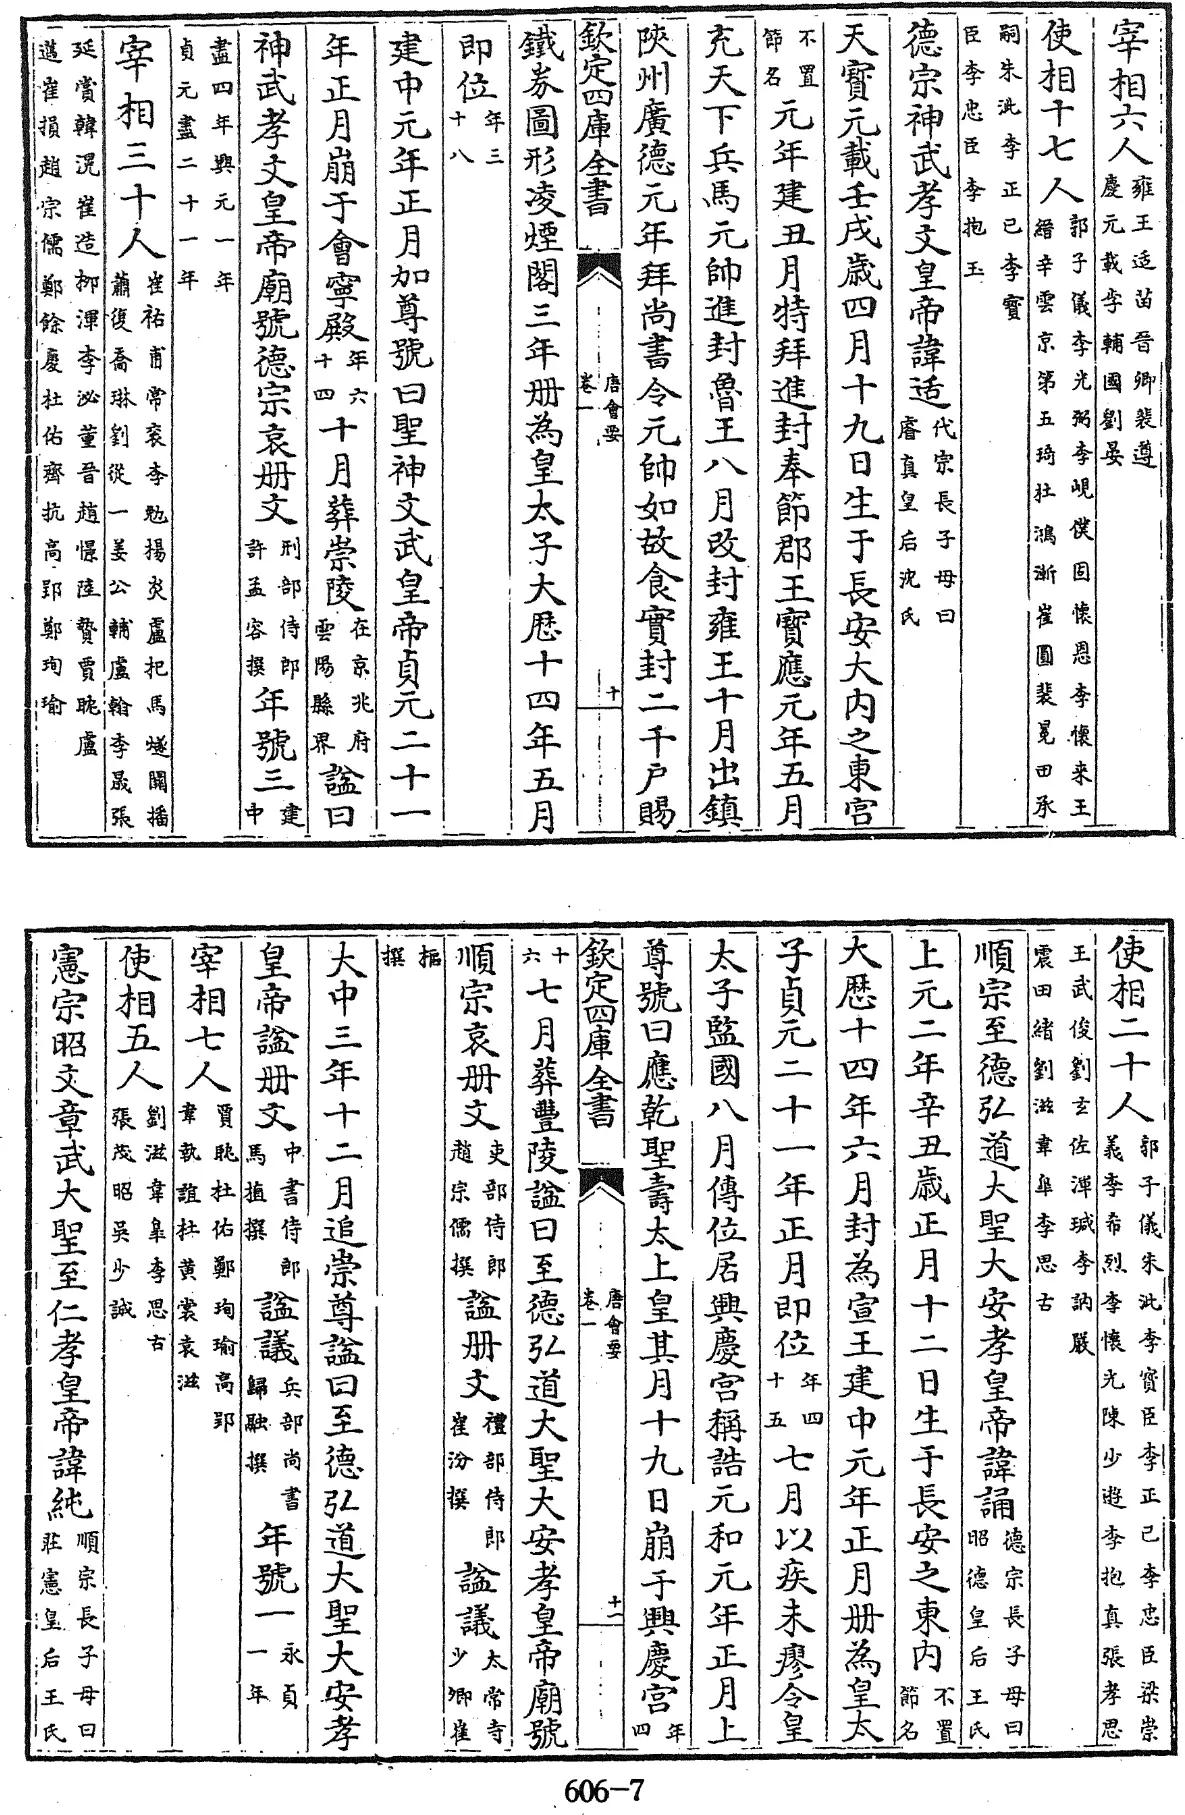 宰相六人雍王适苗晉卿裴遵慶元載李輔國劉晏
使相十七人郭子儀李光弼李峴僕固懷恩李懷來王縉辛雲京第五琦杜鴻漸崔圓裴冕田承
嗣朱泚李正已李寶臣李忠臣李抱玉
德宗神武孝文皇帝諱适代宗長子母曰睿真皇后沈氏
天寶元載壬戌歲四月十九日生于長安大內之東宮
不置節名元年建丑月特拜進封奉節郡王寶應元年五月
充天下兵馬元帥進封魯王八月改封雍王十月出鎮
陝州廣德元年拜尚書令元帥如故食實封二千戶賜
欽定四庫全書 唐會要卷一 十
鐵券圖形凌煙閣三年册為皇太子大厯十四年五月
即位年三十八
建中元年正月加尊號曰聖神文武皇帝貞元二十一
年正月崩于會寧殿年六十四十月葬崇陵在京兆府雲陽縣界諡曰
神武孝文皇帝廟號德宗哀册文刑部侍郎許孟容撰年號三建中
盡四年興元一年貞元盡二十一年
宰相三十人崔祐甫常衮李勉揚炎盧杞馬燧關播蕭復喬琳劉從一姜公輔盧翰李晟張
延賞韓滉崔造栁渾李泌董晉趙憬陸贄賈耽盧邁崔損趙宗儒鄭餘慶杜佑齊抗高郢鄭珣瑜
使相二十人郭子儀朱泚李寶臣李正已李忠臣梁崇義李希烈李懷光陳少遊李抱真張孝忠
王武俊劉玄佐渾瑊李訥嚴震田緒劉滋韋臯李思古
順宗至德弘道大聖大安孝皇帝諱誦德宗長子母曰昭德皇后王氏
上元二年辛丑歲正月十二日生于長安之東內不置節名
大厯十四年六月封為宣王建中元年正月册為皇太
子貞元二十一年正月即位年四十五七月以疾未瘳令皇
太子監國八月傳位居興慶宮稱誥元和元年正月上
尊號曰應乾聖壽太上皇其月十九日崩于興慶宮年四
欽定四庫全書 唐會要卷一 十一
十六七月葬豐陵諡曰至德弘道大聖大安孝皇帝廟號
順宗哀册文吏部侍郎趙宗儒撰諡册文禮部侍郎崔汾撰諡議太常寺少卿崔
樞撰
大中三年十二月追崇尊諡曰至德弘道大聖大安孝
皇帝諡册文中書侍郎馬植撰諡議兵部尚書歸融撰年號一永貞一年
宰相七人賈耽杜佑鄭珣瑜高郢韋執誼杜黄裳袁滋
使相五人劉滋韋臯李思古張茂昭吳少誠
憲宗昭文章武大聖至仁孝皇帝諱純順宗長子母曰莊憲皇后王氏
606-7